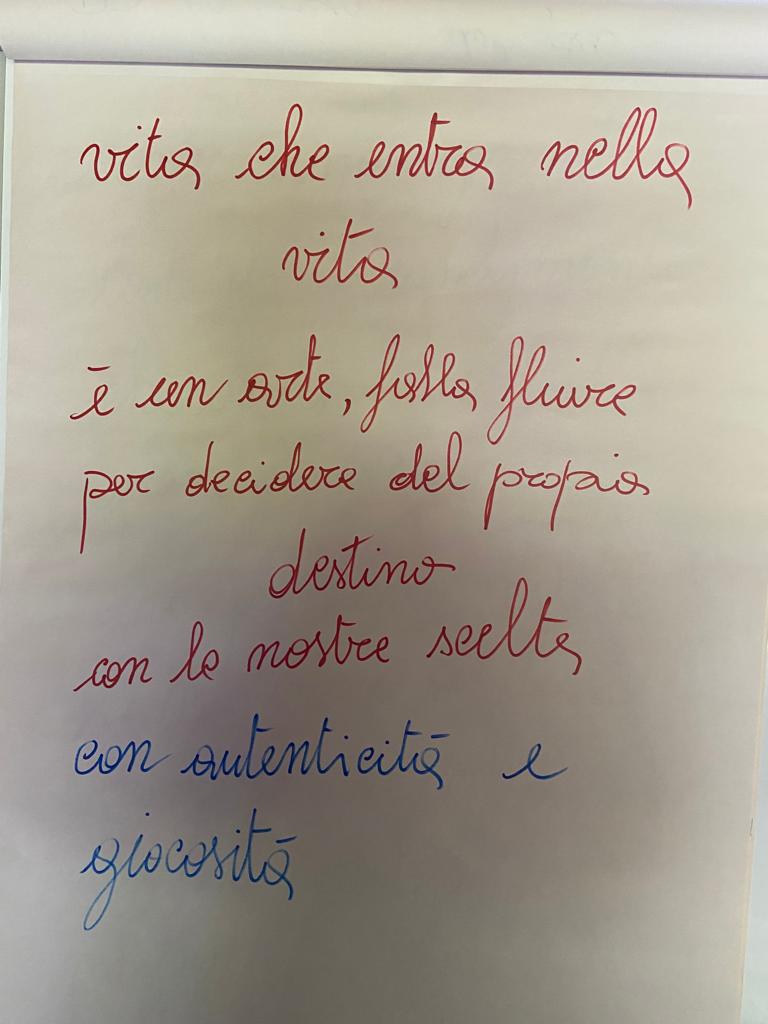 vita che entra nella
vita
è un arte, falla fluire
per decidere del propio
destino
con le nostre scelte
con autenticità e
giocosità